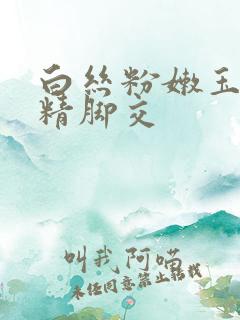 白丝粉嫩玉
精脚交
叫我阿喵
未经同意禁止转载